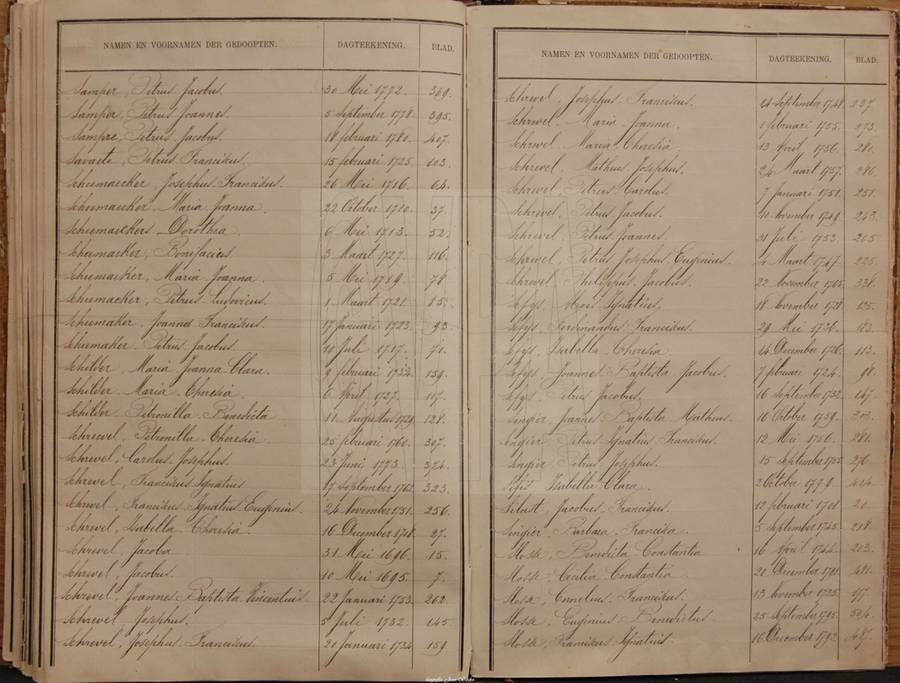 NAMEN EN VOORNAMEN DER GEDOOPTEN. DAGTEEKENING. BLAD.
Samper, Petrus Jacobus. 30 Mei 1772. 369.
Samper, Petrus Joannes. 5 September 1778. 395.
Sampre, Petrus Jacobus. 18 februari 1780. 407.
Savaete, Petrus Franciscus. 15 februari 1725. 103.
Schumaecker, Josephus Franciscus. 26 Mei 1716. 64.
Schumaecker, Maria Joanna. 22 October 1710. 37.
Schumaeckers Dorothea 6 Mei 1713. 52.
Schumacker, Bonifacius 3 Maart 1727. 116.
Schumacker, Maria Joanna. 5 Mei 1719. 78
Schumacker, Petrus Ludovicus. 1 Maart 1721. 85.
Schumaker, Joannes Franciscus. 17 Januari 1723. 93.
Schumaker, Petrus Jacobus. 10 Juli 1717. 70.
Schilder, Maria Joanna Clara. 2 februari 1734. 159.
Schilder, Maria Theresia. 6 April 1727. 117.
Schilder Petronilla Benedicta 11 Augustus 1729. 128.
Schrevel, Petronilla Theresia 25 februari 1760. 307.
Schrevel, Carolus Josephus. 23 Juni 1773. 374.
Schrevel, Franciscus Ignatius 17 September 1762. 323.
Schrevel, Franciscus Ignatius Eugenius. 24 November 1751. 256.
Schrevel, Isabella Theresia. 16 December 1708. 27.
Schrevel, Jacoba 31 Mei 1696. 15.
Schrevel, Jacobus. 10 Mei 1695. 7.
Schrevel, Joannes Baptista Vincentius. 22 Januari 1753. 262.
Schrevel, Josephus. 5 Juli 1732. 145
Schrevel, Josephus Franciscus. 20 Januari 1734 159
NAMEN EN VOORNAMEN DER GEDOOPTEN. DAGTEEKENING. BLAD.
Schrevel, Josephus Franciscus. 24 September 1748. 237.
Schrevel, Maria Joanna. 1 februari 1755. 273.
Schrevel Maria Theresia. 13 April 1756. 280.
Schrevel, Mathias Josephus. 24 Maart 1757. 286.
Schrevel Petrus Carolus. 7 Januari 1751. 251.
Schrevel, Petrus Jacobus. November 1749. 243.
Schrevel, Petrus Joannes. 31 Juli 1753. 265
Schrevel, Petrus Josephus Eugenius. Maart 1747. 225.
Schrevel Philippus Jacobus. 22 November 1765. 338.
Ignatius. 18 November 1728. 125.
Ferdinandus Franciscus. 29 Mei 1726. 112.
Isabella Theresia. 14 December 1726. 113.
Joannes Baptista Jacobus. 7 februari 1724. 98.
Petrus Jacobus. 16 September 1732. 147.
Singier, Joannes Baptista Matheus. 10 October 1759. 303.
Singier, Petrus Ignatius Franciscus. 12 Mei 1756. 281.
Singier Petrus Josephus. 15 September 1755. 276.
Isabella Clara. 2 October 1770.
Jacobus Franciscus. 12 februari 1708. 20.
Singier, Barbara Francisca 5 September 1745. 218.
Slosse, Benedicta Constantia 16 April 1744. 203.
Slosse, Cecilia Constantia 20 December 1791. 481.
Slosse, Cornelius Franciscus. 13 November 1725. 107.
Slosse, Eugenius Benedictus 25 September 1795. 504.
Slosse, Franciscus Ignatius. 16 December 1792. 487.